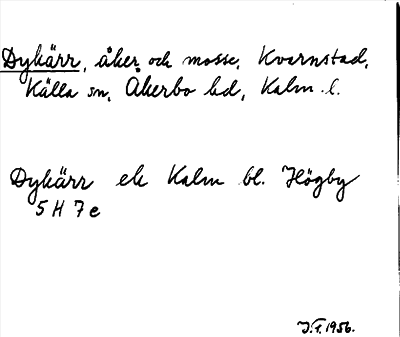 Dykärr, åker och mosse, Kvarnstad,
Källa sn, Åkerbo hd, Kalm. l.
Dykärr ek Kalm bl. Högby
5 H 7 e
J.F. 1956.